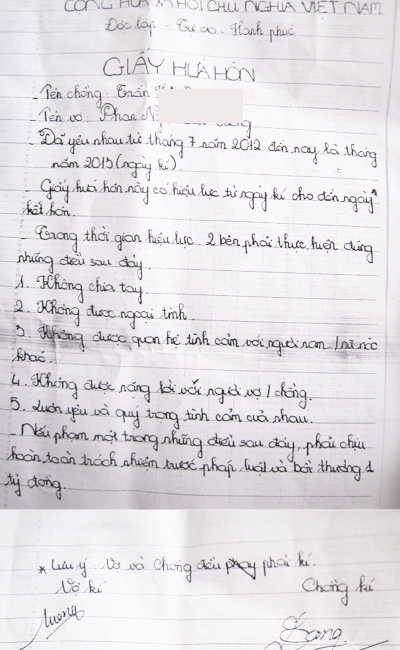 CỘNG HÒA XÃ HỘI CHỦ NGHĨA VIỆT NAM
Độc lập - Tự do - Hạnh phúc
GIẤY HỨA HÔN
- Tên chồng: Trần
- Tên vợ: Phan
- Đã yêu nhau từ tháng 7 năm 2012 đến nay là tháng
năm 2015 (ngày kí).
- Giấy hứa hôn này có hiệu lực từ ngày kí cho đến ngày
kết hôn.
- Trong thời gian hiệu lực 2 bên phải thực hiện đúng
những điều sau đây.
1. Không chia tay.
2. Không được ngoại tình.
3. Không được quan hệ tình cảm với người nam / nữ nào
khác.
4. Không được nặng lời với người vợ / chồng.
5. Luôn yêu và quý trọng tình cảm của nhau.
- Nếu phạm một trong những điều sau đây, phải chịu
hoàn toàn trách nhiệm trước pháp luật và bồi thường 1
tỷ đồng.
* Lưu ý: Vợ và chồng đều phải kí.
Vợ kí
Chồng kí